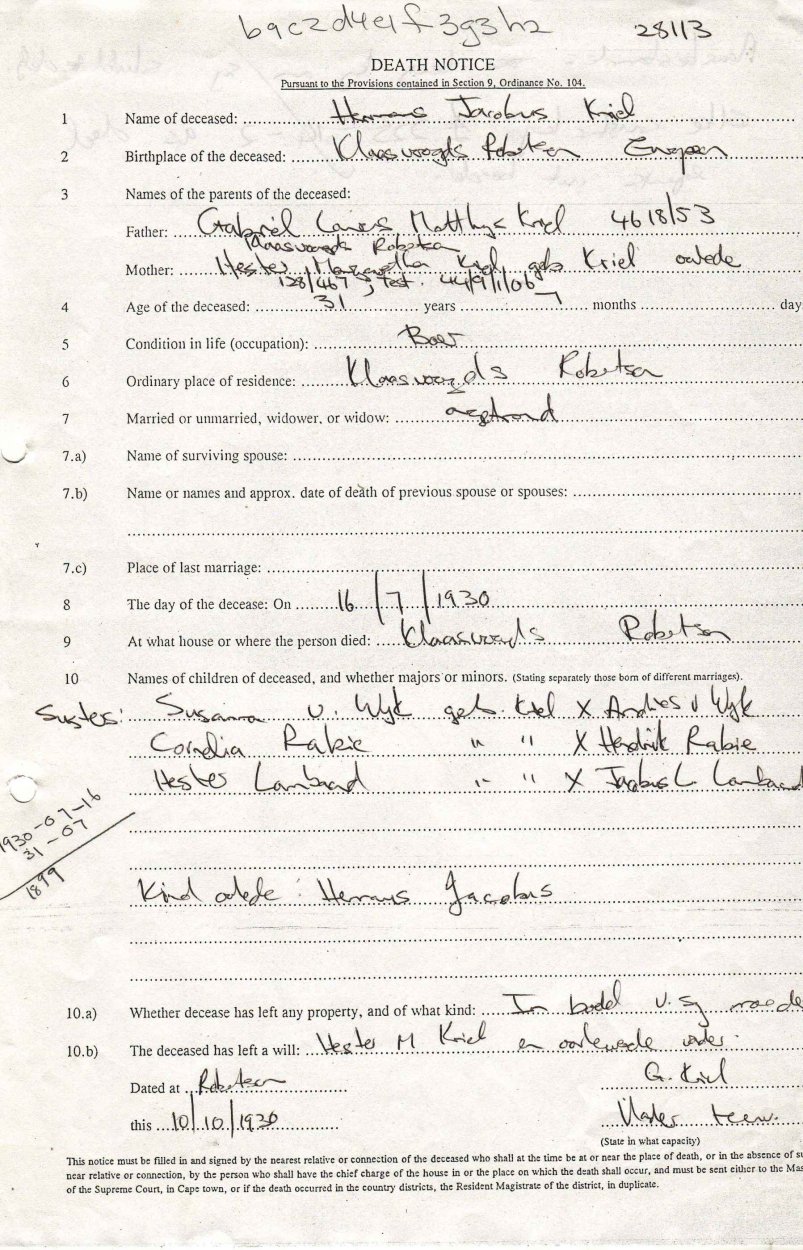 b9c2d4e1f3g3h2 28113
DEATH NOTICE
Pursuant to the Provisions contained in Section 9, Ordinance No. 104.
1 Name of deceased: Hermanus Jacobus Kriel
2 Birthplace of the deceased: Klaasvoogds Robertson European
3 Names of the parents of the deceased:
Father: Gabriel Matthys Kriel 4618/53
Klaasvoogds Robertson
Mother: Hester Kriel geb Kriel
128/467, Test. 44/9/1/06
4 Age of the deceased: 31 years 7 months day
5 Condition in life (occupation): Boer
6 Ordinary place of residence: Klaasvoogds Robertson
7 Married or unmarried, widower, or widow:
7.a) Name of surviving spouse:
7.b) Name or names and approx. date of death of previous spouse or spouses:
7.c) Place of last marriage:
8 The day of the decease: On 16/7/1930
9 At what house or where the person died: Klaasvoogds Robertson
10 Names of children of deceased, and whether majors or minors. (Stating separately those born of different marriages).
Susters: Susanna v. Wyk geb. Kriel X Andries v Wyk
Cornelia Rabie " " X Hendrik Rabie
Hester Lambaard " " X Jacobus L. Lambaard
1930-07-16
31-07
1899
Kind : Hermanus Jacobus
10.a) Whether decease has left any property, and of what kind: In boedel v. sy
10.b) The deceased has left a will: Hester M Kriel en
Dated at Robertson
G. Kriel
this 10/10/1930
Vader
(State in what capacity)
This notice must be filled in and signed by the nearest relative or connection of the deceased who shall at the time be at or near the place of death, or in the absence of
near relative or connection, by the person who shall have the chief charge of the house in or the place on which the death shall occur, and must be sent either to the
of the Supreme Court, in Cape town, or if the death occurred in the country districts, the Resident Magistrate of the district, in duplicate.